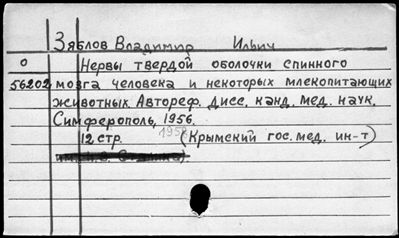 Зяблов Владимир Ильич
0 Нервы твердой оболочки спинного
56202 мозга человека и некоторых млекопитающих
животных. Автореф. дисс. канд. мед. наук.
Симферополь, 1956.
12 стр. 1958 (Крымский гос. мед. ин-т)
им. И. В. Сталина).